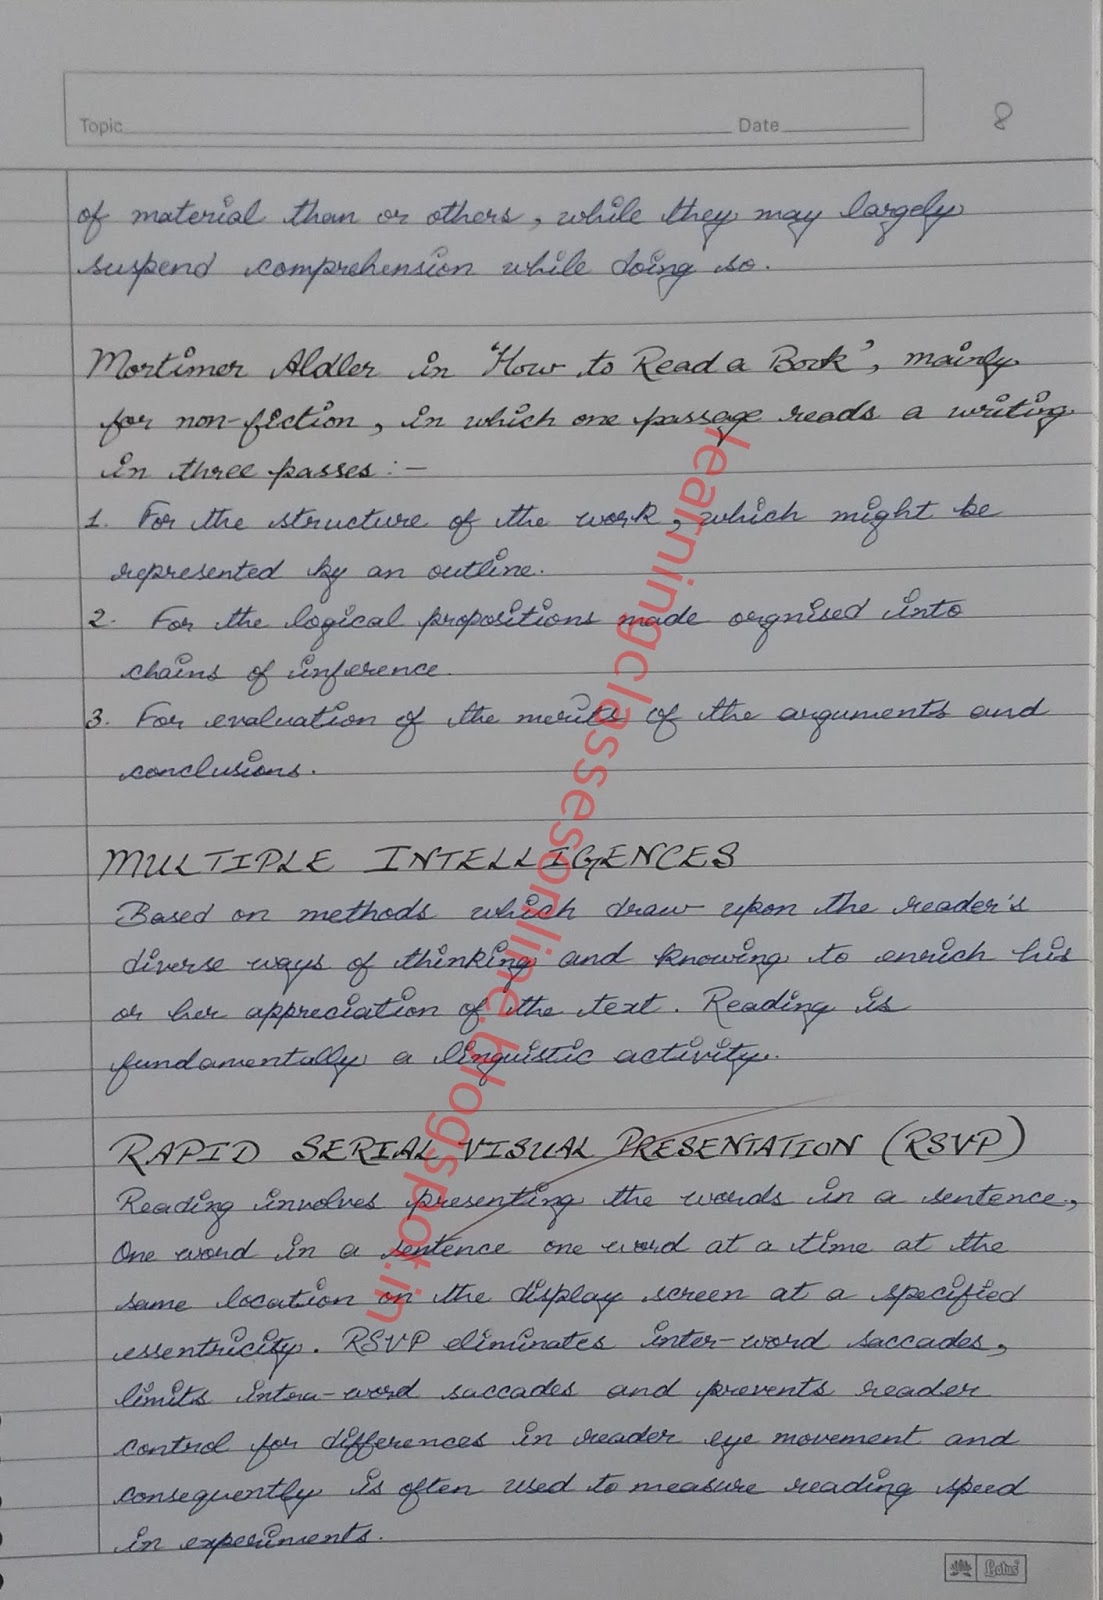 Topic Date 8
of material than or others, while they may largely
suspend comprehension while doing so.
Mortimer Aldler in 'How to Read a Book', mainly
for non-fiction, in which one passage reads a writing
in three passes:-
1. For the structure of the work, which might be
represented by an outline.
2. For the logical propositions made orgnised into
chains of inference.
3. For evaluation of the merits of the arguments and
conclusions.
MULTIPLE INTELLIGENCES
Based on methods which draw upon the reader's
diverse ways of thinking and knowing to enrich his
or her appreciation of the text. Reading is
fundamentally a linguistic activity.
RAPID SERIAL VISUAL PRESENTATION (RSVP)
Reading involves presenting the words in a sentence,
One word in a sentence one word at a time at the
same location on the display screen at a specified
essentricity. RSVP eliminates inter-word saccades,
limits intra-word saccades and prevents reader
control for differences in reader eye movement and
consequently is often used to measure reading speed
in experiments.
learningclassesonline.blogspot.in
Lotus